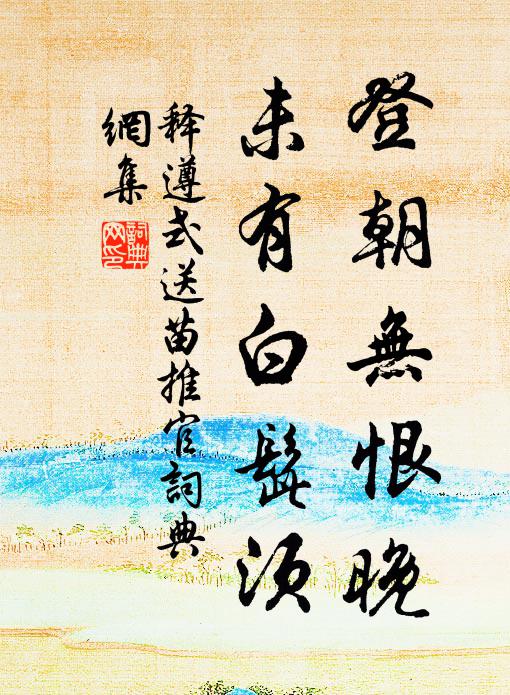 登朝無恨晚
未有白髭須
释遵式送苗推官詞典
網集
詞典
网印